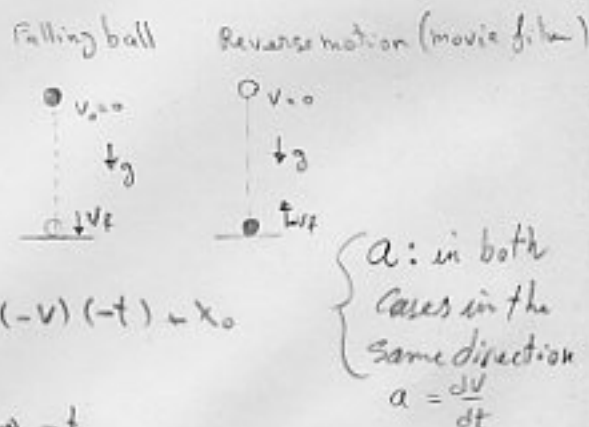 Falling ball
Reverse motion (movie film)
V₀=0
V=0
g
g
Vf
Vf
a: in both
cases in the
same direction
(-v)(-t) + x₀
a = dV/dt